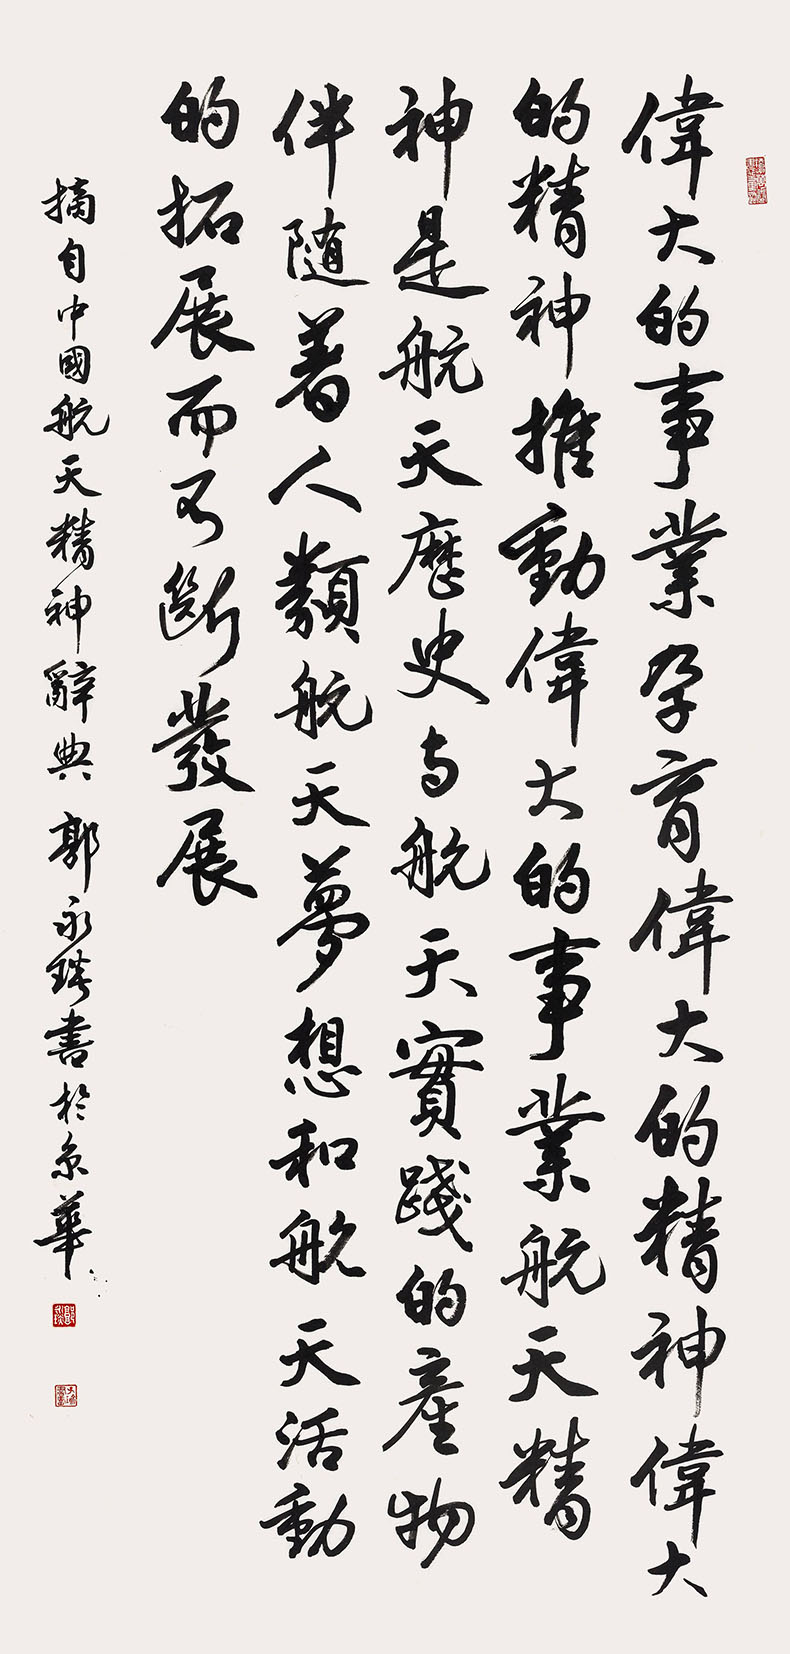 偉大的事業孕育偉大的精神偉大
的精神推動偉大的事業航天精
神是航天歷史与航天實踐的產物
伴隨着人類航天夢想和航天活動
的拓展而不斷發展
摘自中國航天精神辭典 郭永琰書於京華